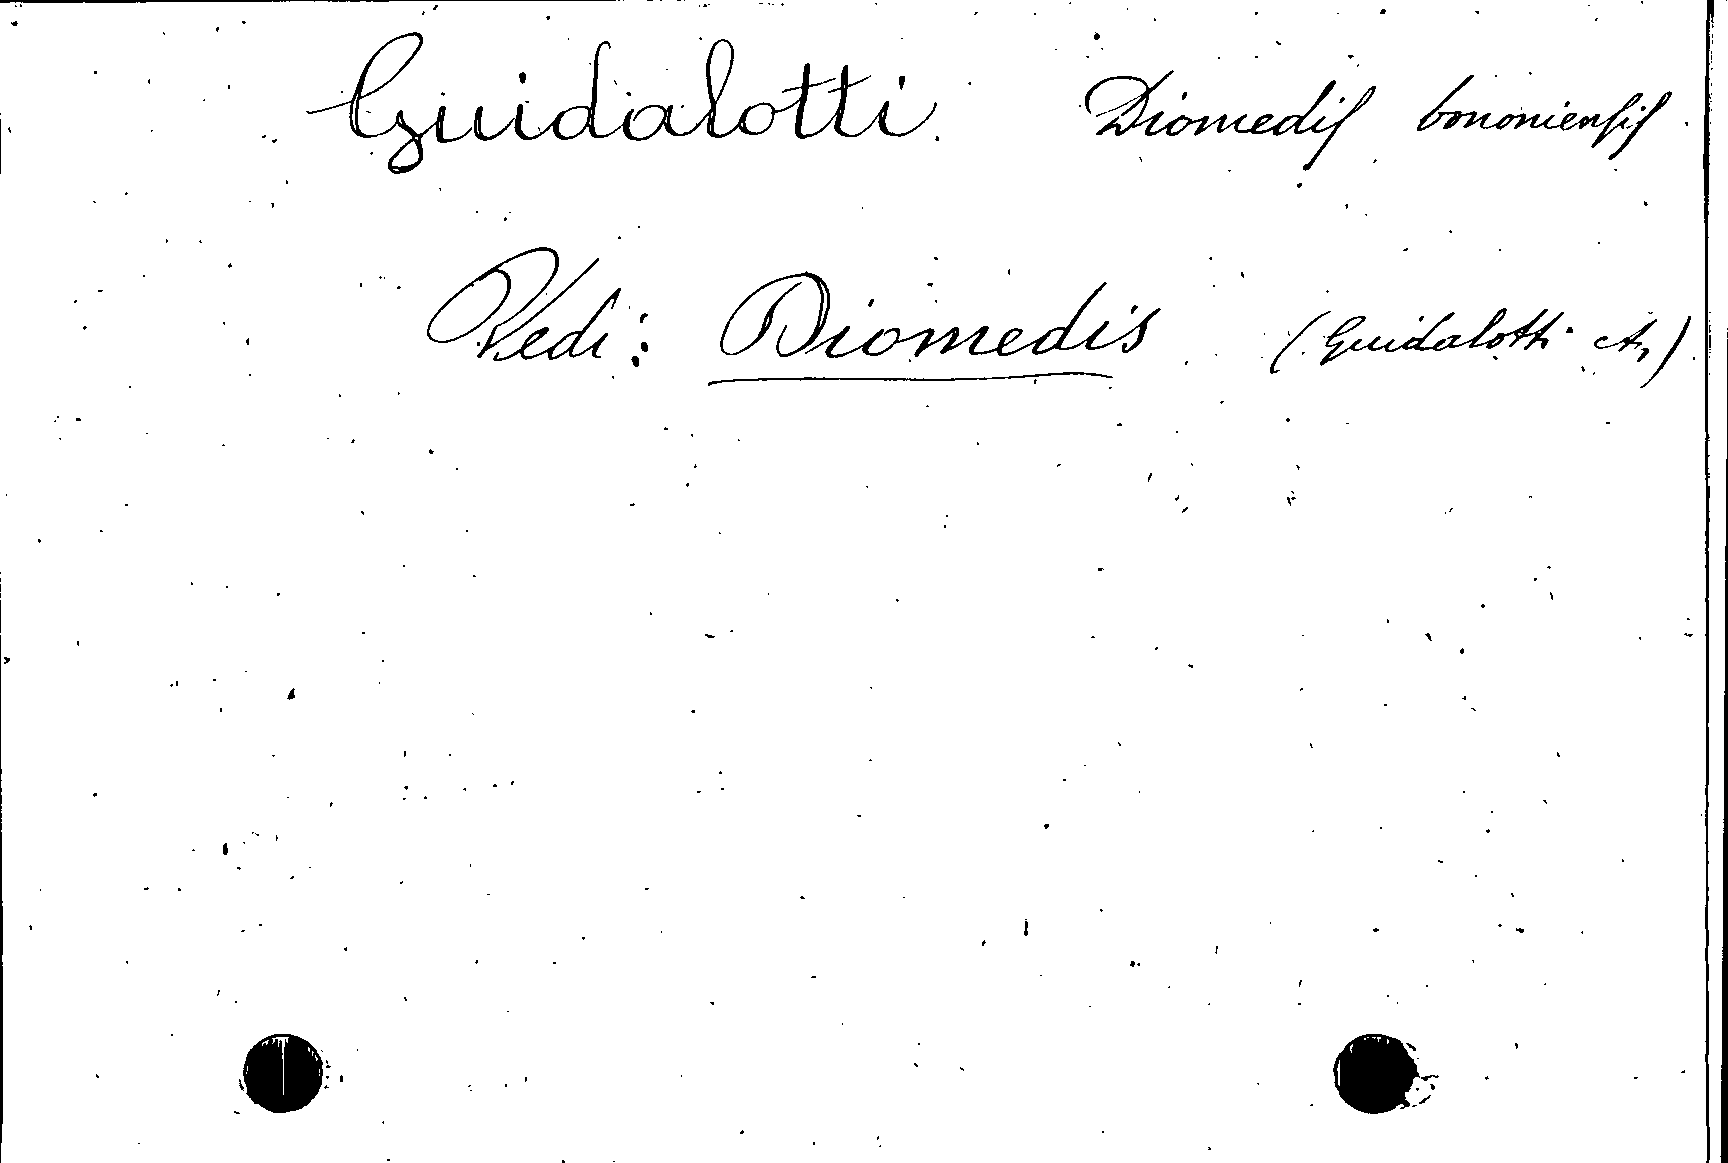 Guidalotti Diomediſ bononienſiſ
Vedi: Diomedis (Guidalotti